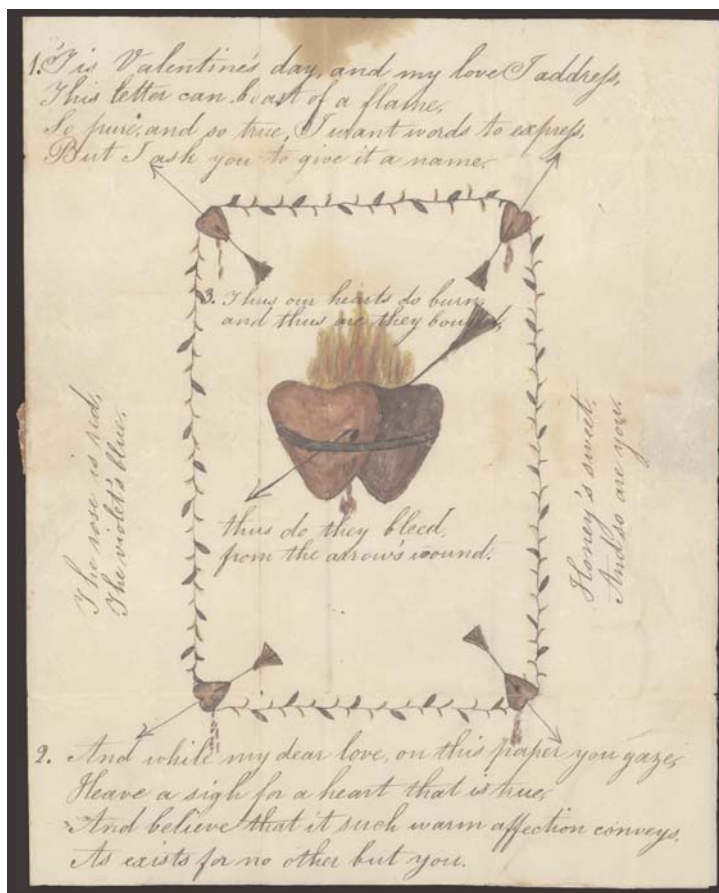 1. 'Tis Valentine's day, and my love I address,
This letter can boast of a flame,
So pure, and so true, I want words to express,
But I ask you to give it a name.
3. Thus our hearts do burn,
and thus are they bound,
thus do they bleed,
from the arrow's wound.
The rose is red,
The violet's blue,
Honey's sweet,
And so are you.
2. And while my dear love, on this paper you gaze,
Heave a sigh for a heart that is true,
And believe that it such warm affection conveys,
As exists for no other but you.